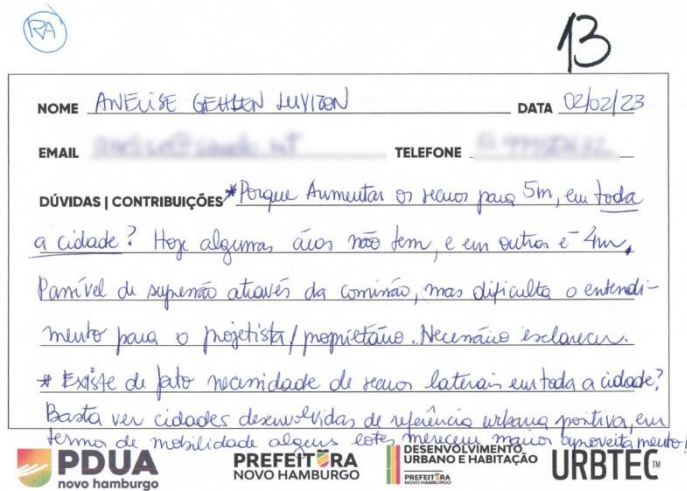 RA
13
NOME ANELISE GEHLEN LUVIZON DATA 02/02/23
EMAIL TELEFONE
DÚVIDAS | CONTRIBUIÇÕES * Porque Aumentar os recuos para 5m, em toda
a cidade? Hoje algumas áreas não tem, e em outros é 4m.
Passível de supressão através da comissão, mas dificulta o entendi-
mento para o projetista/proprietário. Necessário esclarecer.
* Existe de fato necessidade de recuos laterais em toda a cidade?
Basta ver cidades desenvolvidas de referência urbana positiva, em
termo de mobilidade alguns lotes merecem maior aproveitamento!
PDUA
novo hamburgo
PREFEITURA
NOVO HAMBURGO
DESENVOLVIMENTO
URBANO E HABITAÇÃO
PREFEITURA
NOVO HAMBURGO
URBTEC TM